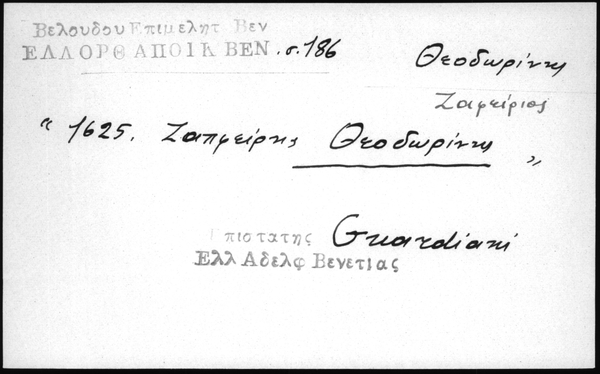 Βελουδου Επιμελητ Βεν
ΕΛΛΟΡΘ ΑΠΟΙΚ ΒΕΝ. σ. 186
Θεοδωρίνης
Ζαφείριος
“ 1625. Ζαπφείρης Θεοδωρίνης „
Επιστατης Guardiani
Ελλ Αδελφ Βενετιας